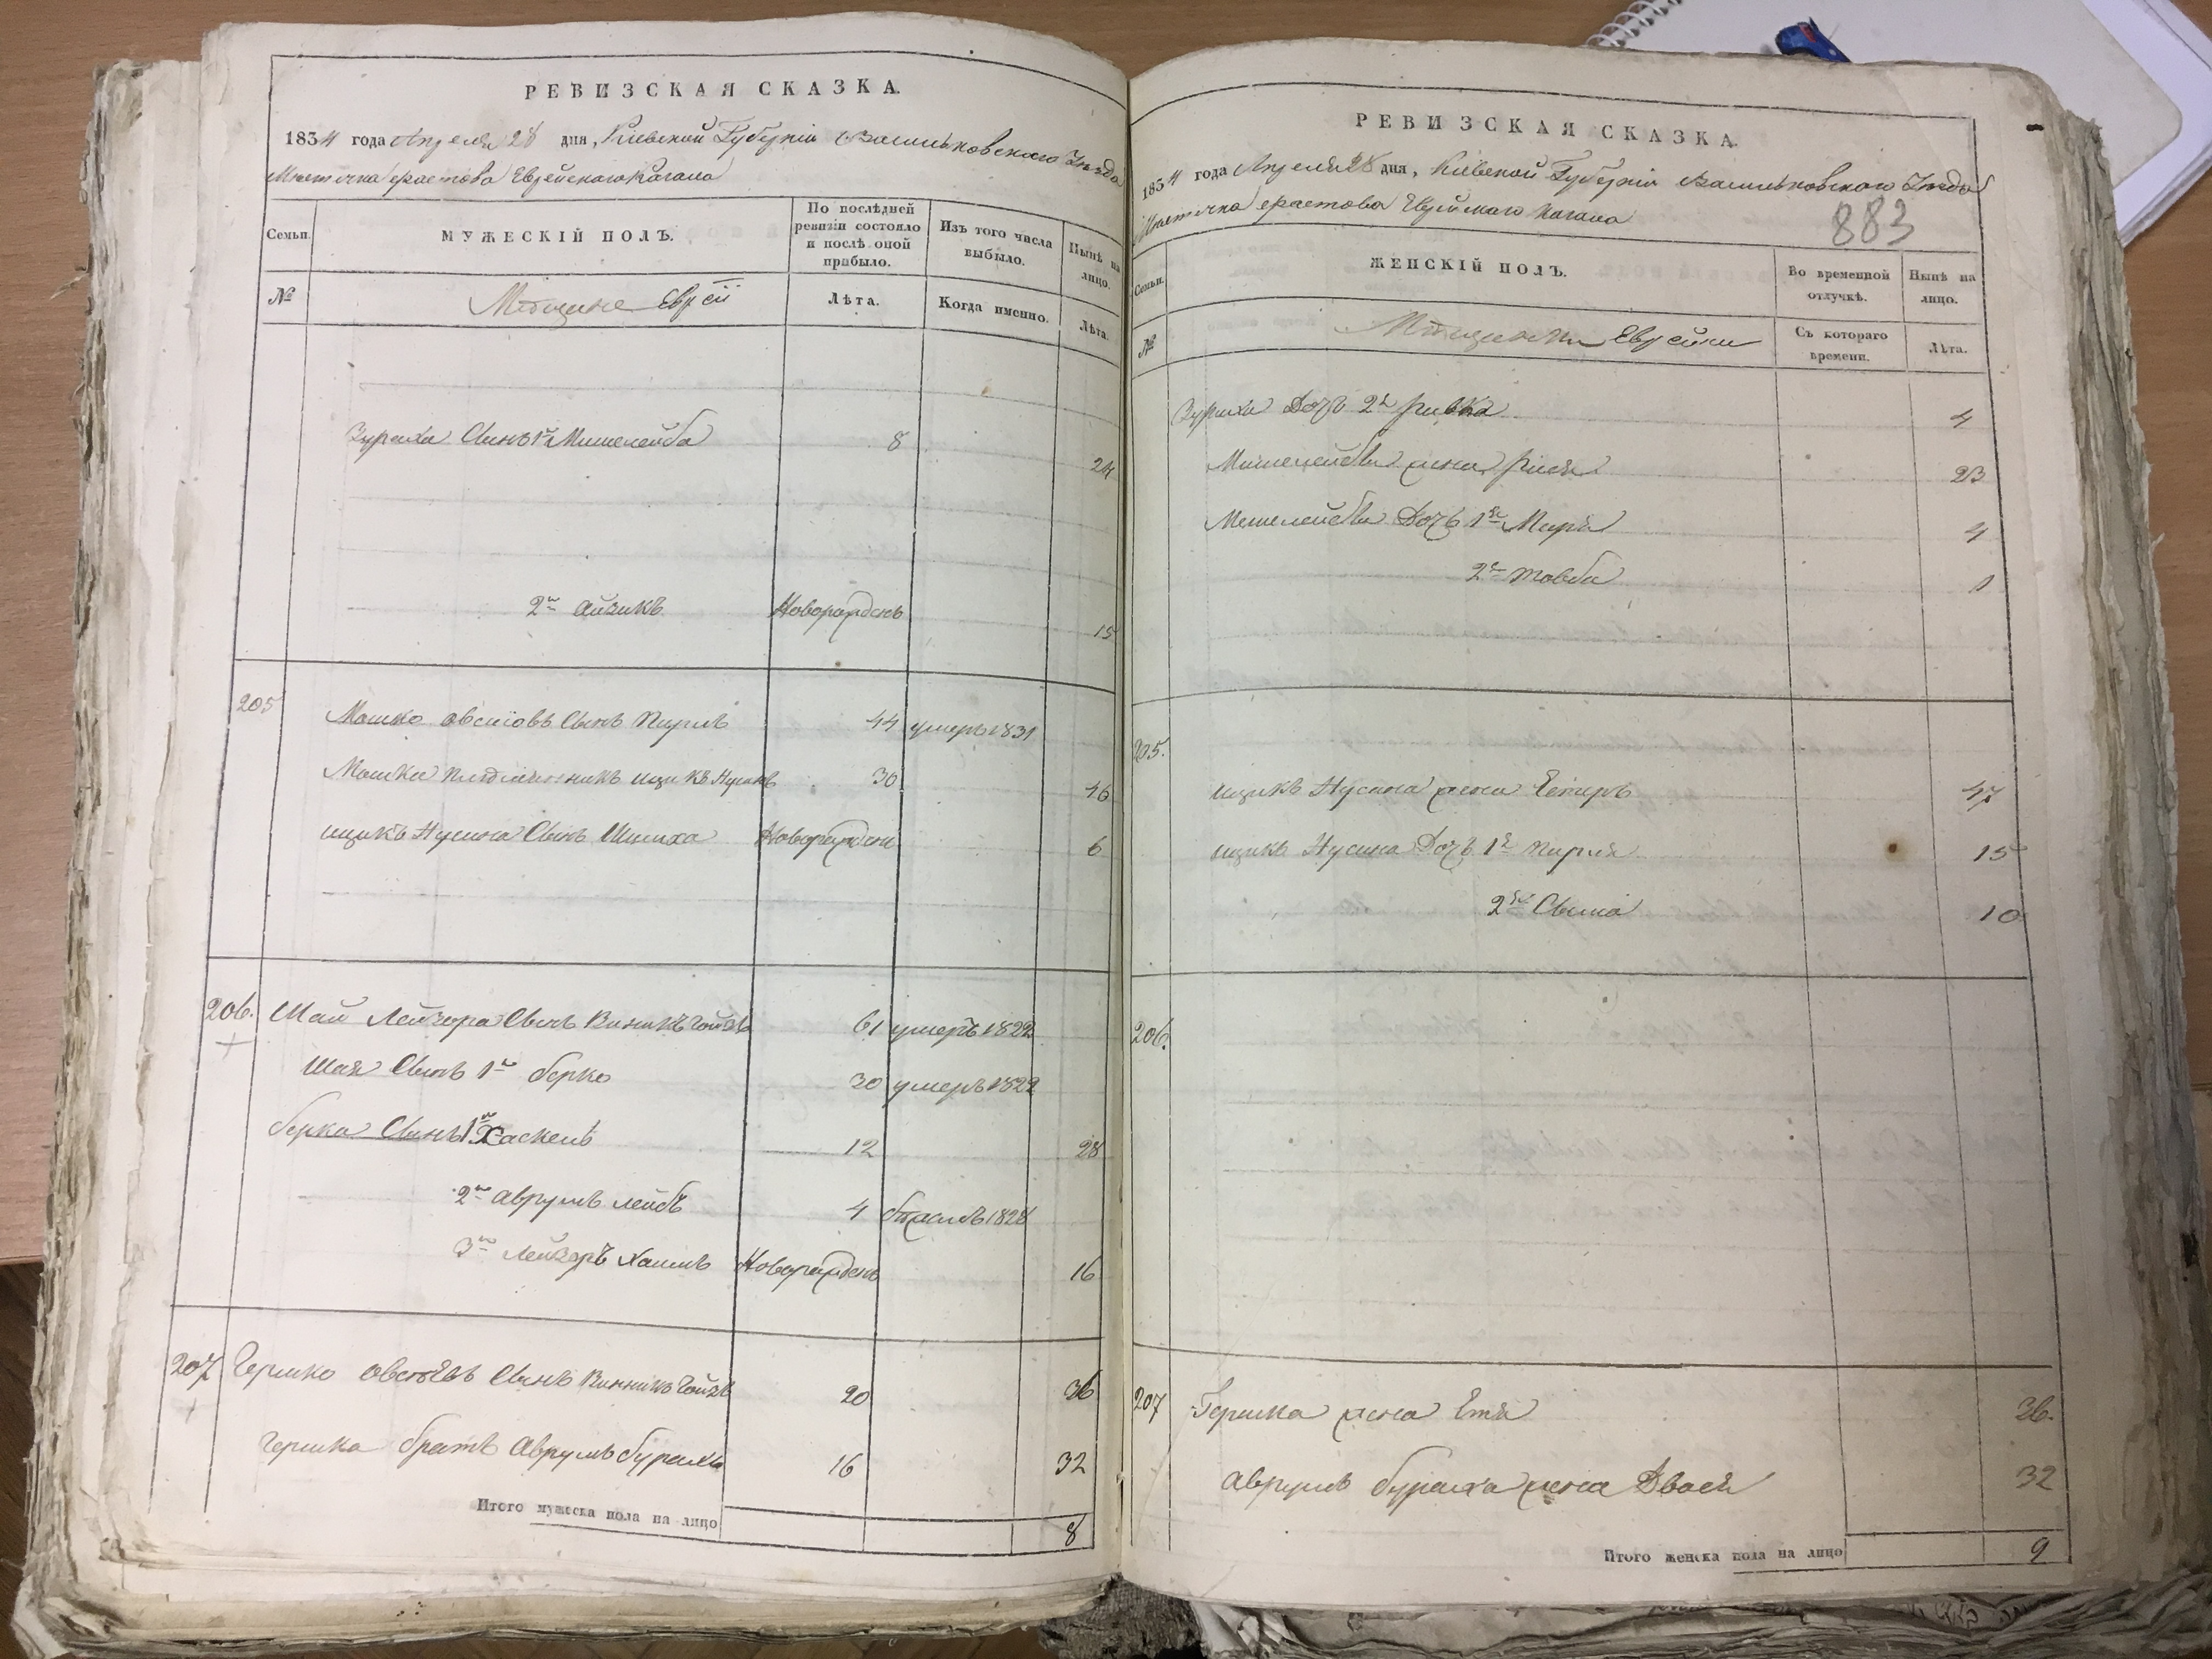 РЕВИЗСКАЯ СКАЗКА.
1834 года Апреля 28 дня, Киевской Губерніи Васильковского Уезда
Местечка Фастова Еврейскаго Кагала
Семьи.
МУЖЕСКІЙ ПОЛЪ.
По послѣдней ревизіи состояло и послѣ оной прибыло.
Изъ того числа выбыло.
Нынѣ на лицо.
№
Мещане Евреи
Лѣта.
Когда именно.
Лѣта.
Сынъ 1й 8 24
2й Айзикъ Новорожденъ 15
205 Мошко Овсіовъ Сынъ 44 умеръ 1831
Мошки племянникъ Ицикъ Нусинъ 30 46
Ицикъ Нусина Сынъ Новорожденъ 6
206. Шая Лейзора Сынъ 61 умеръ 1822
Шая Сынъ 1й Берко 30 умеръ 1822
Берка Сынъ 1й Хаскель 12 28
2й Аврумъ Лейбъ 4 1828
3й Лейзоръ Хаимъ Новорожденъ 16
207 Гершко Овсіовъ Сынъ 20 36
Гершка братъ Аврумъ 16 32
Итого мужеска пола на лицо 8
РЕВИЗСКАЯ СКАЗКА.
1834 года Апреля 28 дня, Киевской Губерніи Васильковского Уезда
Местечка Фастова Еврейскаго Кагала
883
Семьи.
ЖЕНСКІЙ ПОЛЪ.
Во временной отлучкѣ.
Нынѣ на лицо.
№
Мещанки Еврейки
Съ котораго времени.
Лѣта.
Дочь 2я Ривка 4
жена Рися 23
Дочь 1я Мира 4
2я Товба 1
205.
Ицикъ Нусина жена Естеръ 47
Ицикъ Нусина Дочь 1я Пирля 15
2я 10
206.
207 Гершка жена Етя 36.
Аврумъ жена Двося 32
Итого женска пола на лицо 9